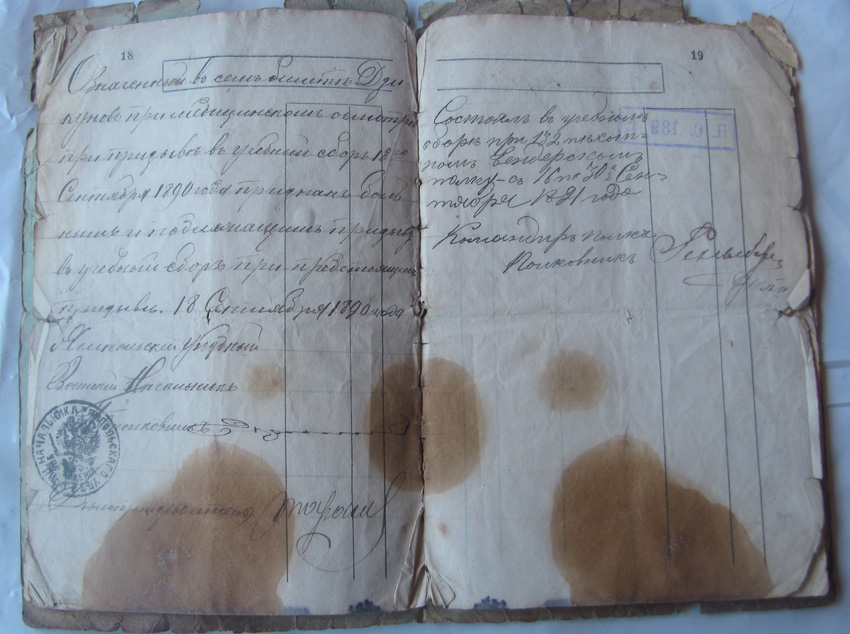 18
Означенный въ семъ билетѣ Дди
куновъ при медицинскомъ осмотрѣ
при призывѣ въ учебный сборъ 18го
Сентября 1890 года признанъ боль
нымъ и подлежащимъ призыву
въ учебный сборъ при предстоящемъ
призывѣ. 18 Сентября 1890 года
Уѣздный
Воинскій Начальникъ
Полковникъ
Делопроизводитель
19
Состоялъ въ учебномъ
сборѣ при 132 пѣхот-
номъ Бендерскомъ
полку съ 16 по 30е Сен-
тября 1891 года
Командиръ полка
Полковникъ
П. С. 189